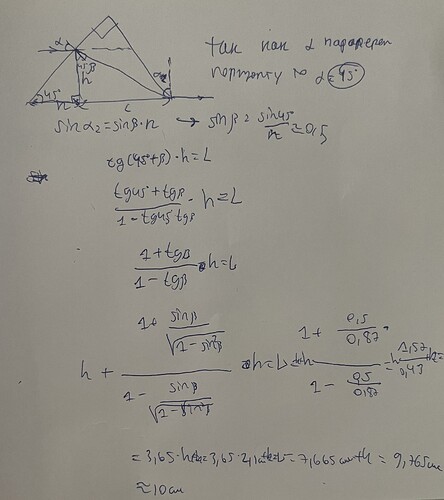 так как α параллелен
горизонту то α = 45°
α
45° β
h
α₂
45°
n
L
sin α₂ = sin β · n → sin β = sin 45° / n ≈ 0,5
tg(45°+β) · h = L
(tg45° + tgβ) / (1 - tg45° tgβ) · h = L
(1 + tgβ) / (1 - tgβ) · h = L
h + (1 + sinβ / √(1 - sin²β)) / (1 - sinβ / √(1 - sin²β)) · h = L = h (1 + 0,5 / 0,87) / (1 - 0,5 / 0,87) = h 1,57 / 0,43
= 3,65 · h = 3,65 · 2,1 = 7,665 см + h = 9,765 см
≈ 10 см